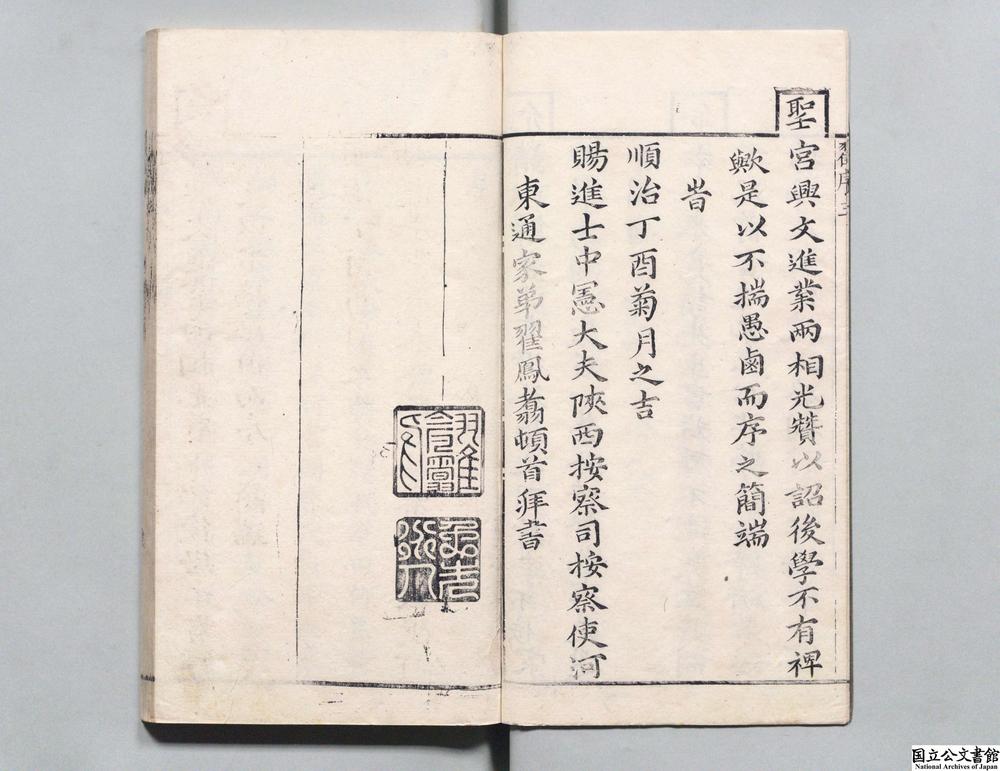 聖宮興文進業兩相光贊以詔後學不有裨
歟是以不揣愚鹵而序之簡端
旹
順治丁酉菊月之吉
賜進士中憲大夫陝西按察司按察使河
東通家弟翟鳳翥頓首拜書
序三
国立公文書館
National Archives of Japan